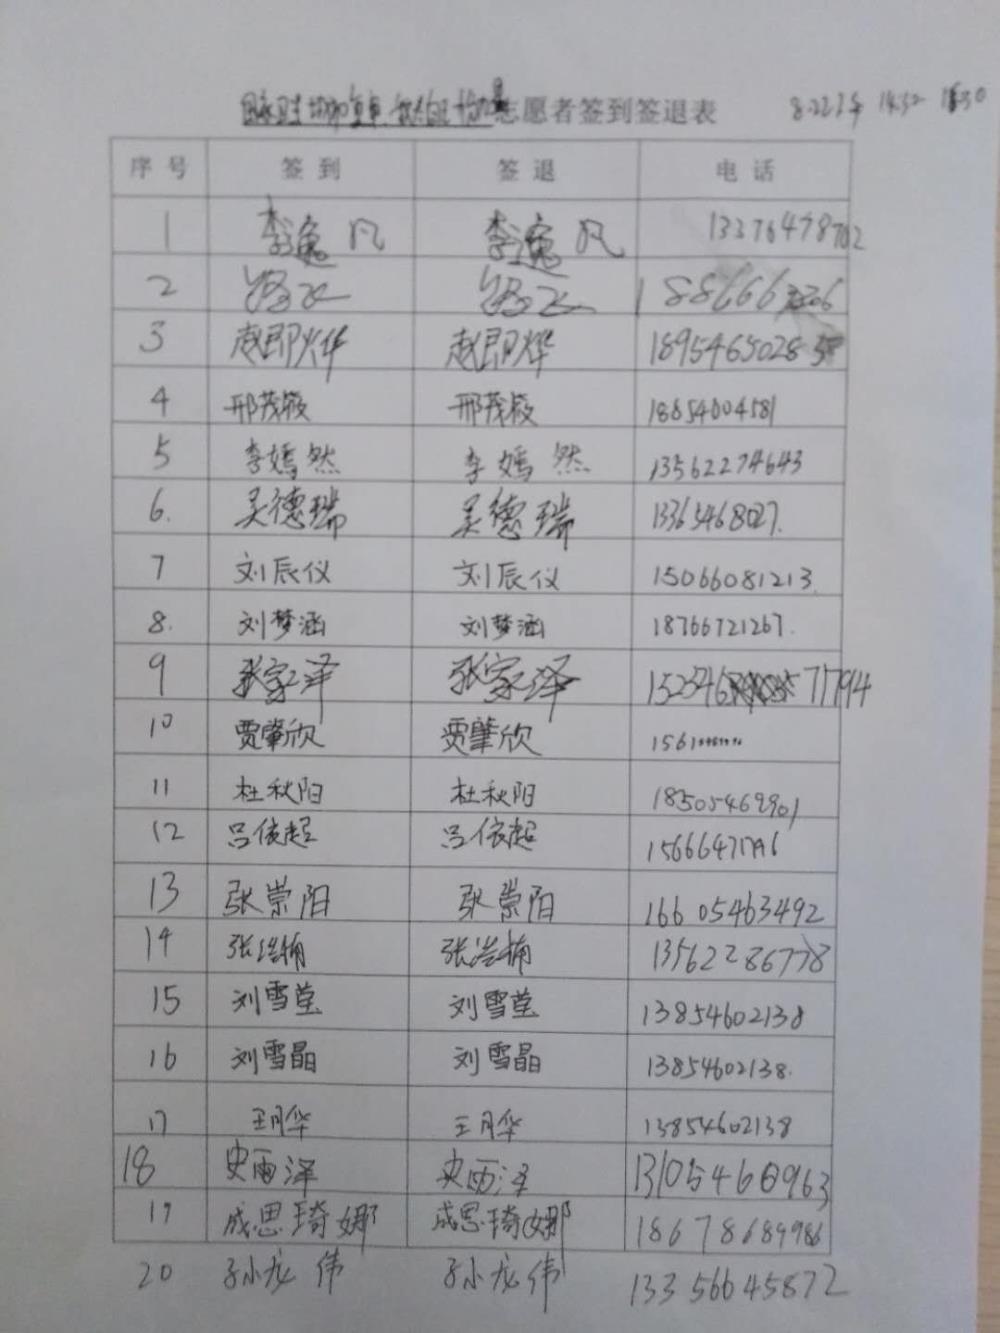 志愿者签到签退表
序号 签到 签退 电话
1 李逸凡 李逸凡
2
3 赵郎烨 赵郎烨
4 邢茂筱 邢茂筱 18654604581
5 李嫣然 李嫣然 13562274643
6. 吴德瑞 吴德瑞 13365468027.
7 刘辰仪 刘辰仪 15066081213.
8. 刘梦涵 刘梦涵 18766721267.
9 张家泽 张家泽 71794
10 贾肇欣 贾肇欣
11 杜秋阳 杜秋阳 18505469901
12 吕依起 吕依起
13 张崇阳 张崇阳 16605463492
14 张浩楠 张浩楠 13562286778
15 刘雪莹 刘雪莹 13854602138
16 刘雪晶 刘雪晶 13854602138.
17 王月华 王月华 13854602138
18 史雨泽 史雨泽 13105460963
19 成思琦娜 成思琦娜 18678689986
20 孙龙伟 孙龙伟 13356645872